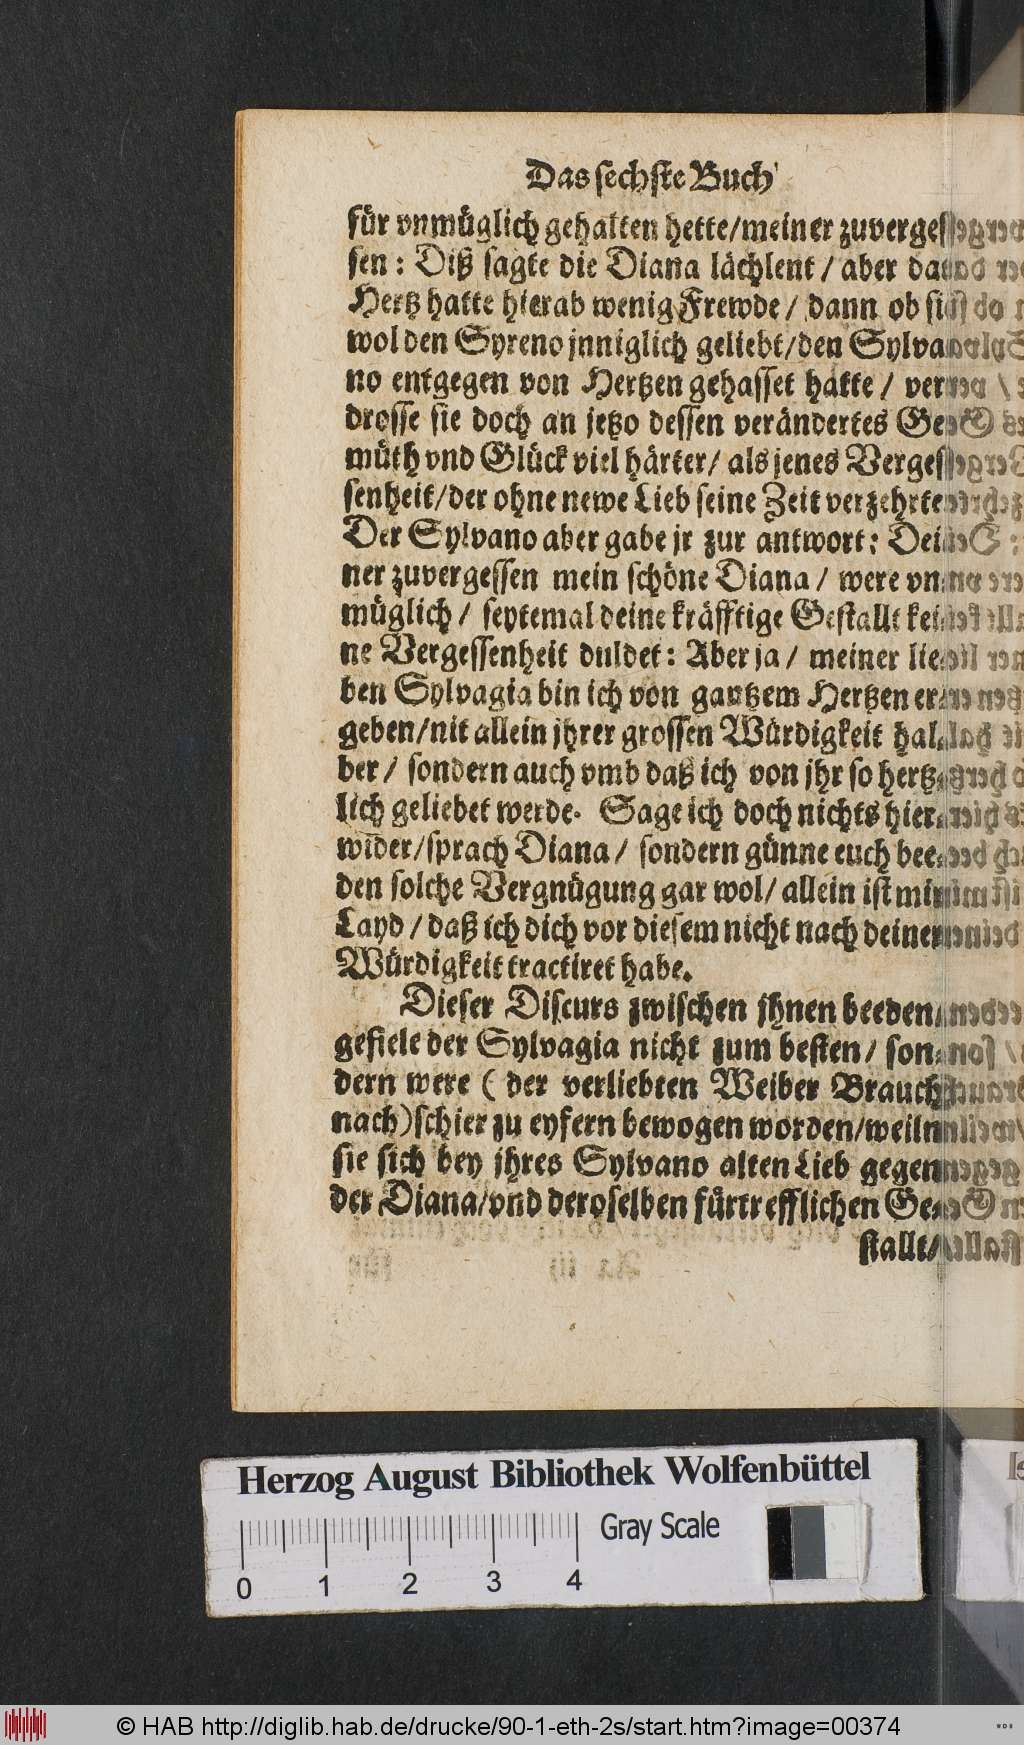 Das sechste Buch
für vnmüglich gehalten hette/meiner zuverges
sen: Diß sagte die Diana lächlent/ aber das
Hertz hatte hierab wenig Frewde/ dann ob sie
wol den Syreno jnniglich geliebt/den Sylva
no entgegen von Hertzen gehasset hatte/ ver
drosse sie doch an jetzo dessen verändertes Ge
müth vnd Glück viel härter/ als jenes Verges
senheit/der ohne newe Lieb seine Zeit verzehrte
Der Sylvano aber gabe jr zur antwort: Dei
ner zuvergessen mein schöne Diana/ were vn
müglich/ seytemal deine kräfftige Gestallt kei
ne Vergessenheit duldet: Aber ja/ meiner lie
ben Sylvagia bin ich von gantzem Hertzen er
geben/nit allein jhrer grossen Würdigkeit hal
ber/ sondern auch vmb daß ich von jhr so hertz
lich geliebet werde. Sage ich doch nichts hier
wider/sprach Diana/ sondern günne euch bee
den solche Vergnügung gar wol/ allein ist mir
Layd/daß ich dich vor diesem nicht nach deiner
Würdigkeit tractiret habe.
Dieser Discurs zwischen jhnen beeden
gefiele der Sylvagia nicht zum besten/ son
dern were (der verliebten Weiber Brauch
nach) schier zu eyfern bewogen worden/weiln
sie sich bey jhres Sylvano alten Lieb gegen
der Diana/vnd deroselben fürtrefflichen Ge
stallt/
Herzog August Bibliothek Wolfenbüttel
Gray Scale
0 1 2 3 4
© HAB http://diglib.hab.de/drucke/90-1-eth-2s/start.htm?image=00374